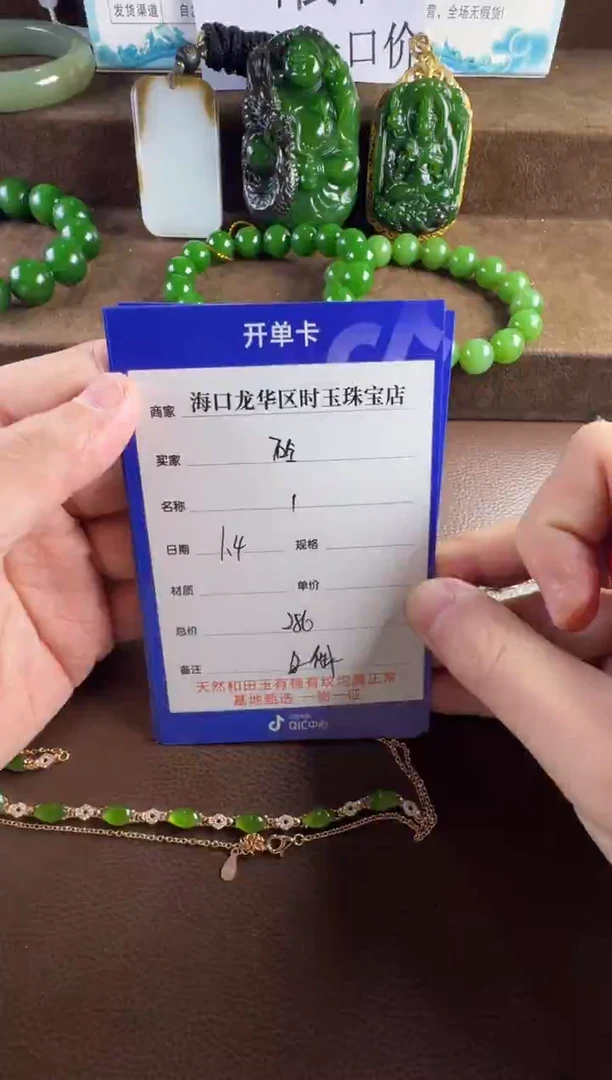 发货渠道
营，全场无假货！
口价
开单卡
商家 海口龙华区时玉珠宝店
买家
名称 1
日期 1.4 规格
材质 单价
总价 286
备注
天然和田玉有棉有纹均属正常
基地甄选 一物一证
QIC中心